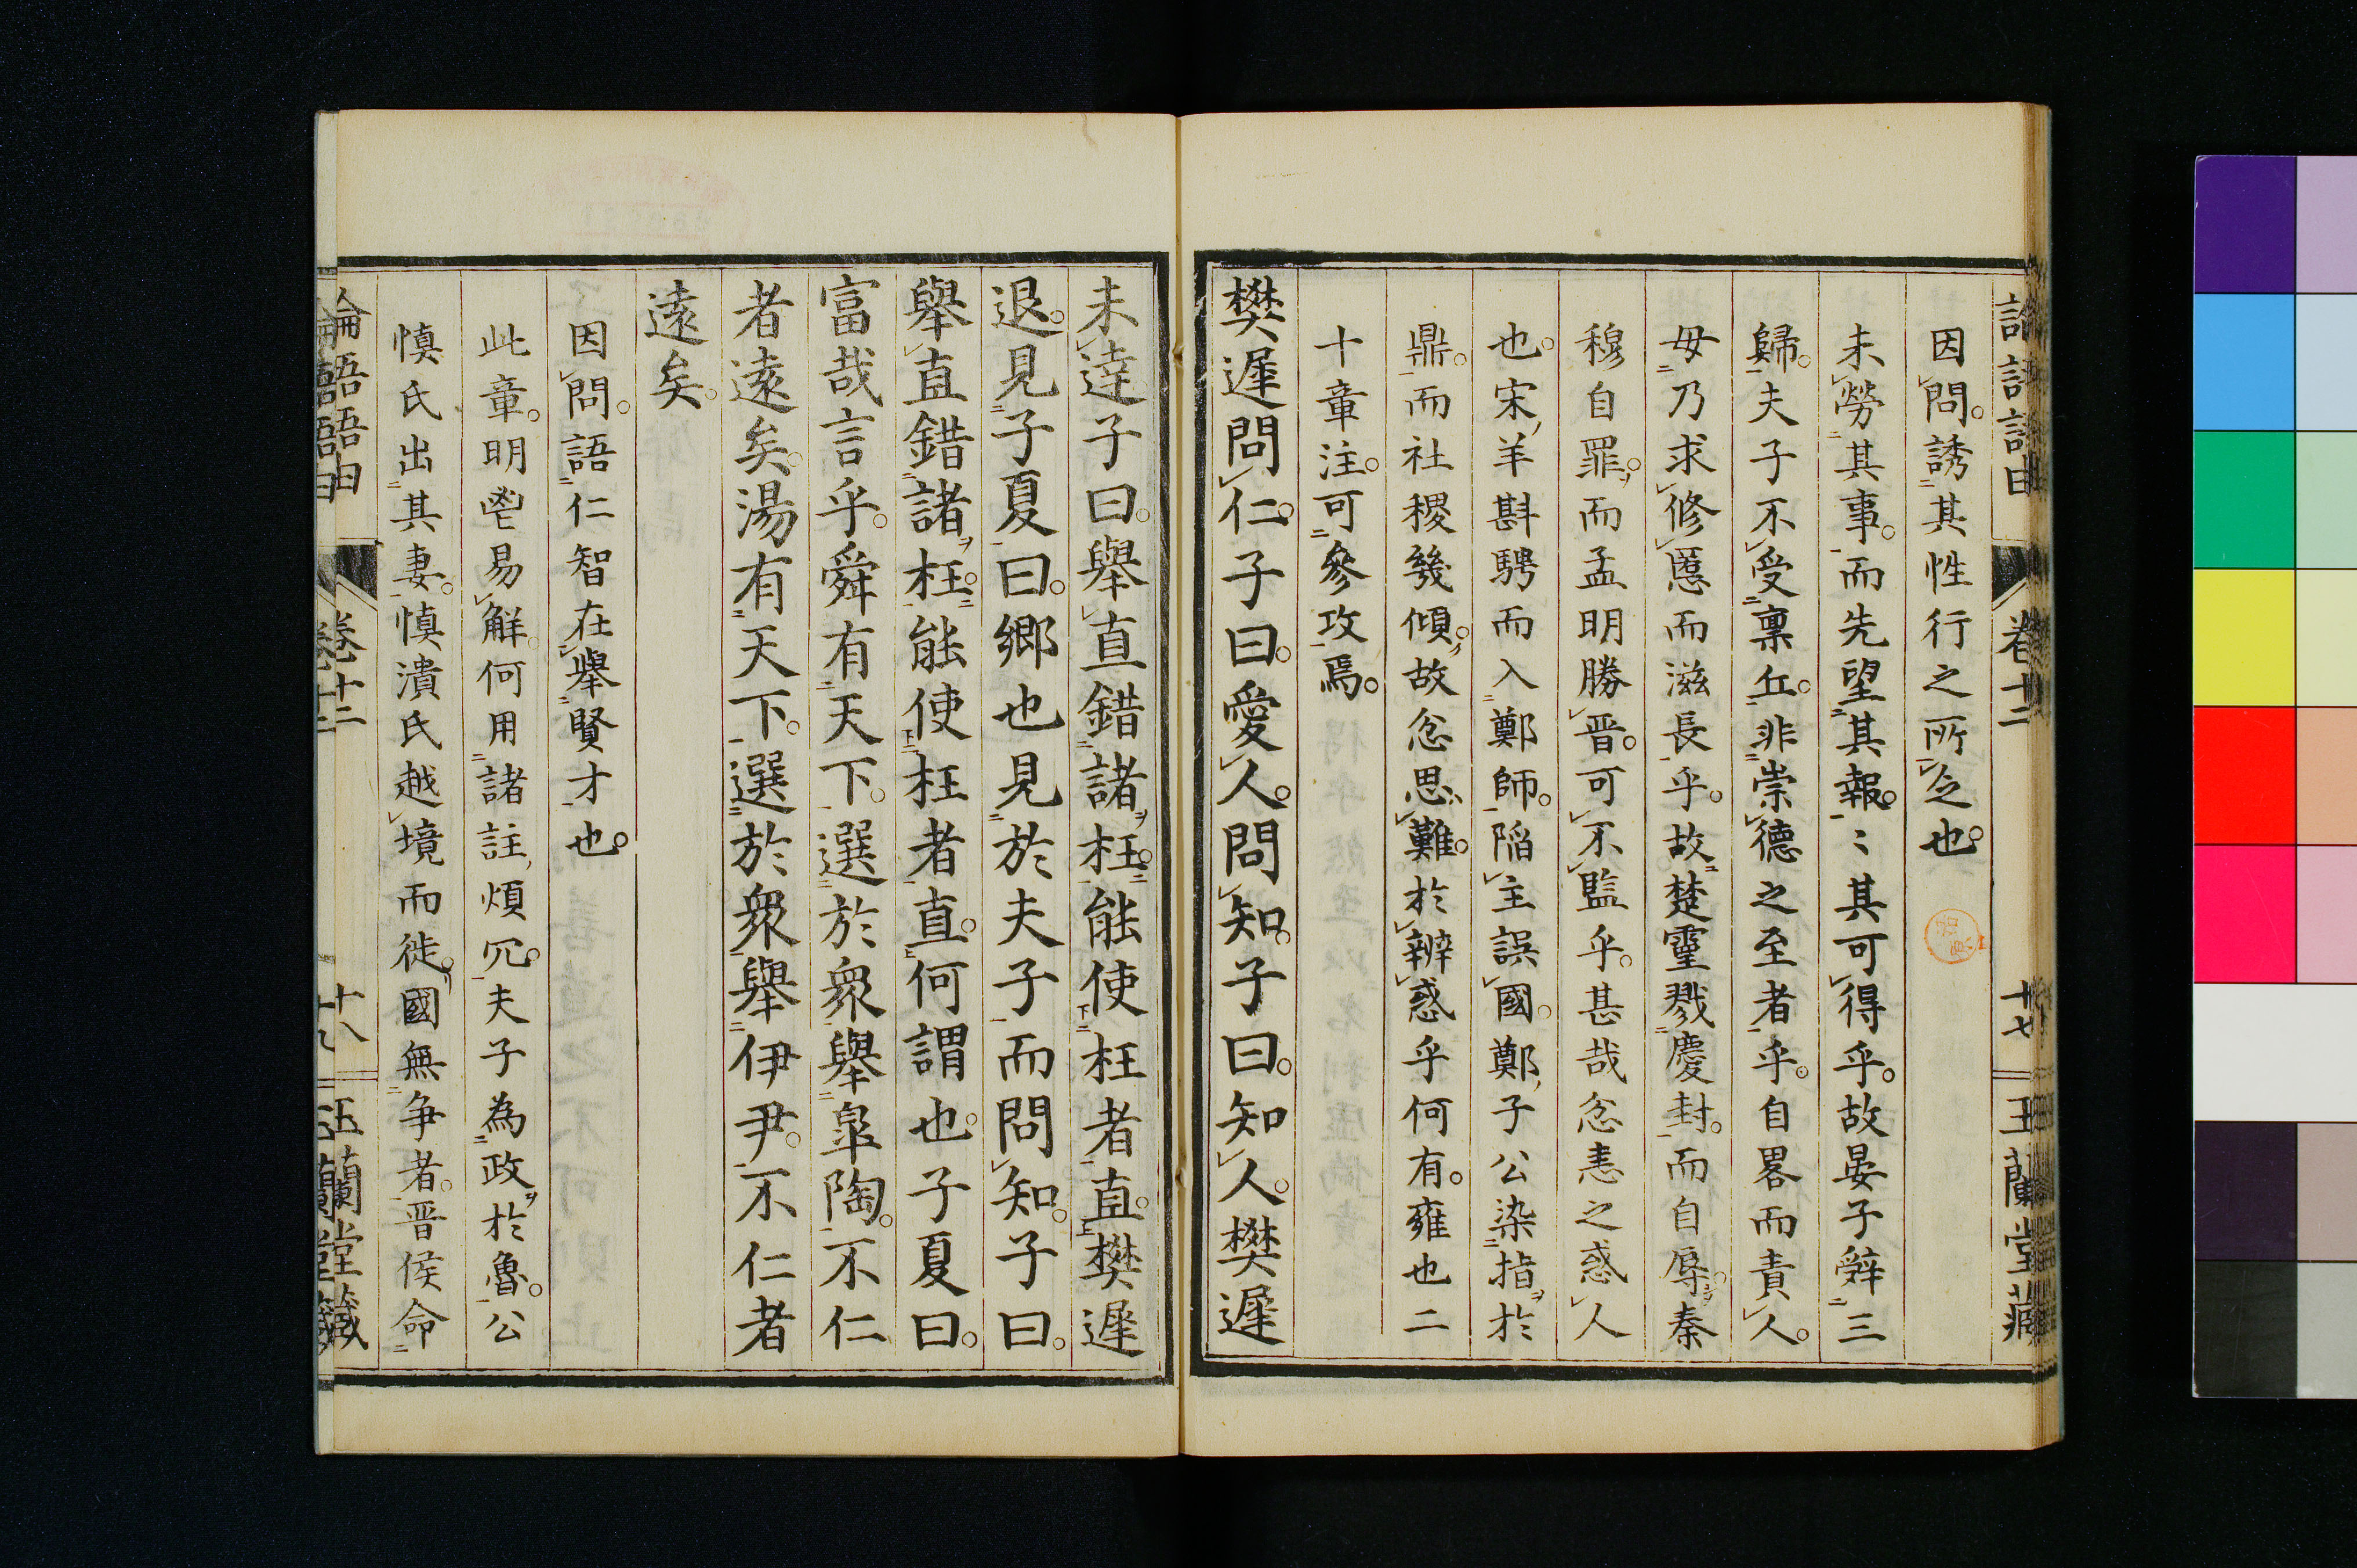 因問誘其性行之所乏也
未勞其事而先望其報〻其可得乎故晏子辭三
歸夫子不受稟丘非崇德之至者乎自畧而責人
毋乃求修慝而滋長乎故楚靈戮慶封而自辱秦
穆自罪而孟明勝晋可不監乎甚哉忿恚之惑人
也宋羊斟騁而入鄭師陷主誤國鄭子公染指於
鼎而社稷幾傾故忿思難於辨惑乎何有雍也二
十章注可參攻焉
樊遲問仁子曰愛人問知子曰知人樊遲
未達子曰舉直錯諸枉能使枉者直樊遲
退見子夏曰鄉也見於夫子而問知子曰
舉直錯諸枉能使枉者直何謂也子夏曰
富哉言乎舜有天下選於衆舉皐陶不仁
者遠矣湯有天下選於衆舉伊尹不仁者
遠矣
因問語仁智在舉賢才也
此章明鬯易解何用諸註煩冗夫子為政於魯公
慎氏出其妻慎潰氏越境而徙國無争者晋侯命
論語語由
卷十二
十八
玉蘭堂藏